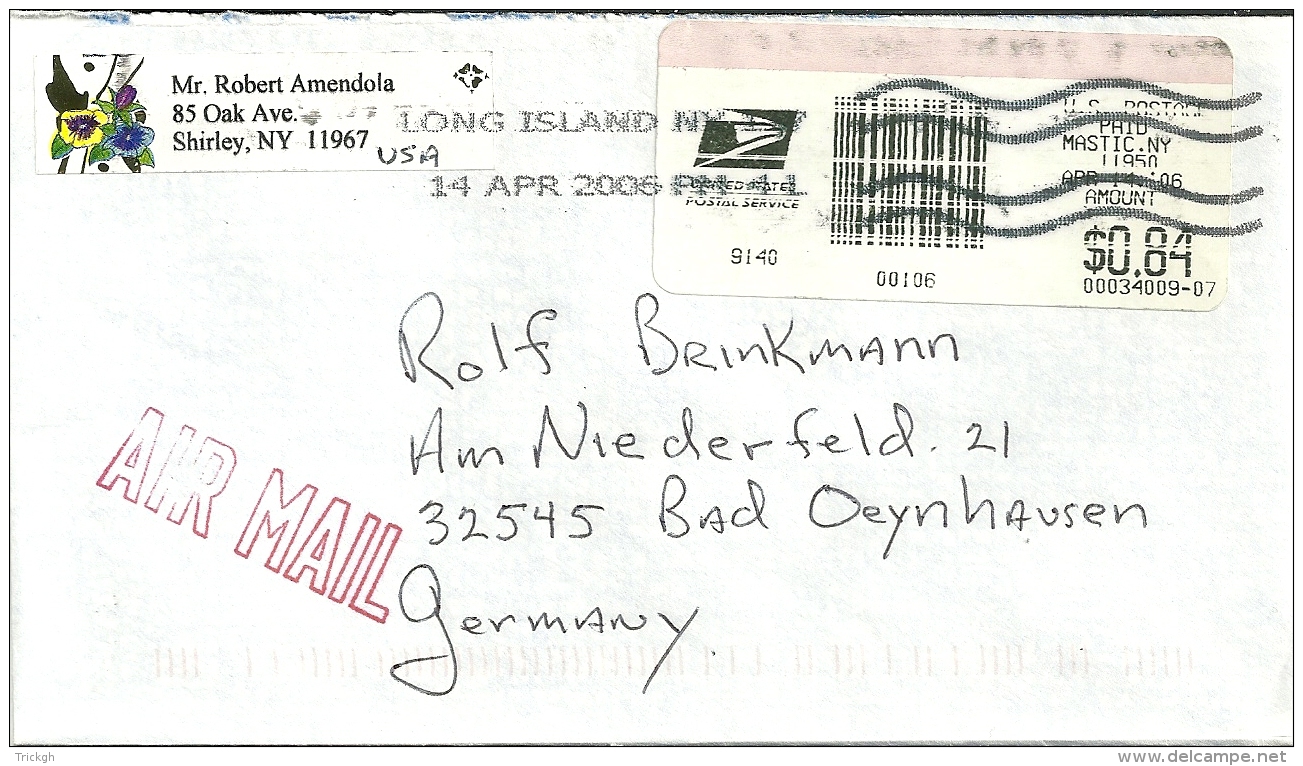 Mr. Robert Amendola
85 Oak Ave.
Shirley, NY 11967
USA
LONG ISLAND NY 117
14 APR 2006 PM 4 L
UNITED STATES
POSTAL SERVICE
9140
00106
U.S. POSTAGE
PAID
MASTIC.NY
11950
APR 14.'06
AMOUNT
$0.84
00034009-07
Rolf Brinkmann
Am Niederfeld. 21
32545 Bad Oeynhausen
Germany
AIR MAIL
Trickgh
www.delcampe.net